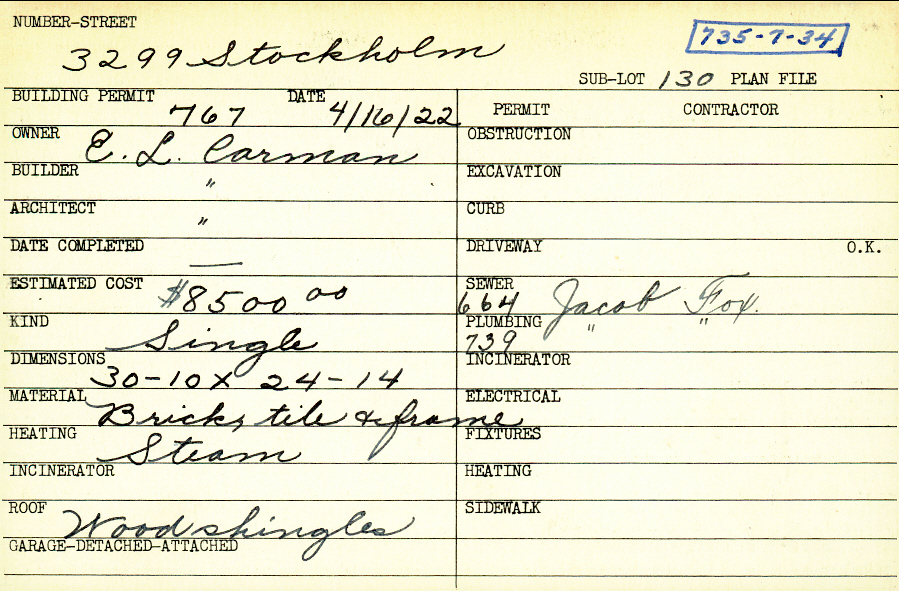 NUMBER-STREET
3299 Stockholm
735-7-34
SUB-LOT 130 PLAN FILE
BUILDING PERMIT 767 DATE 4/16/22
PERMIT CONTRACTOR
OWNER E. L. Carman
OBSTRUCTION
BUILDER "
EXCAVATION
ARCHITECT "
CURB
DATE COMPLETED —
DRIVEWAY O.K.
ESTIMATED COST $8500 00
SEWER 664 Jacob Fox.
KIND Single
PLUMBING 739 " "
DIMENSIONS 30-10 x 24-14
INCINERATOR
MATERIAL Brick, tile & frame
ELECTRICAL
HEATING Steam
FIXTURES
INCINERATOR
HEATING
ROOF Wood shingles
SIDEWALK
GARAGE-DETACHED-ATTACHED